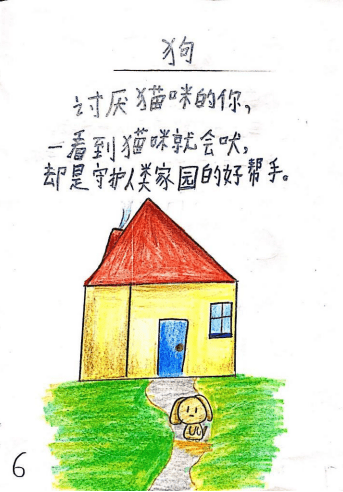 狗
讨厌猫咪的你，
一看到猫咪就会吠，
却是守护人类家园的好帮手。
6